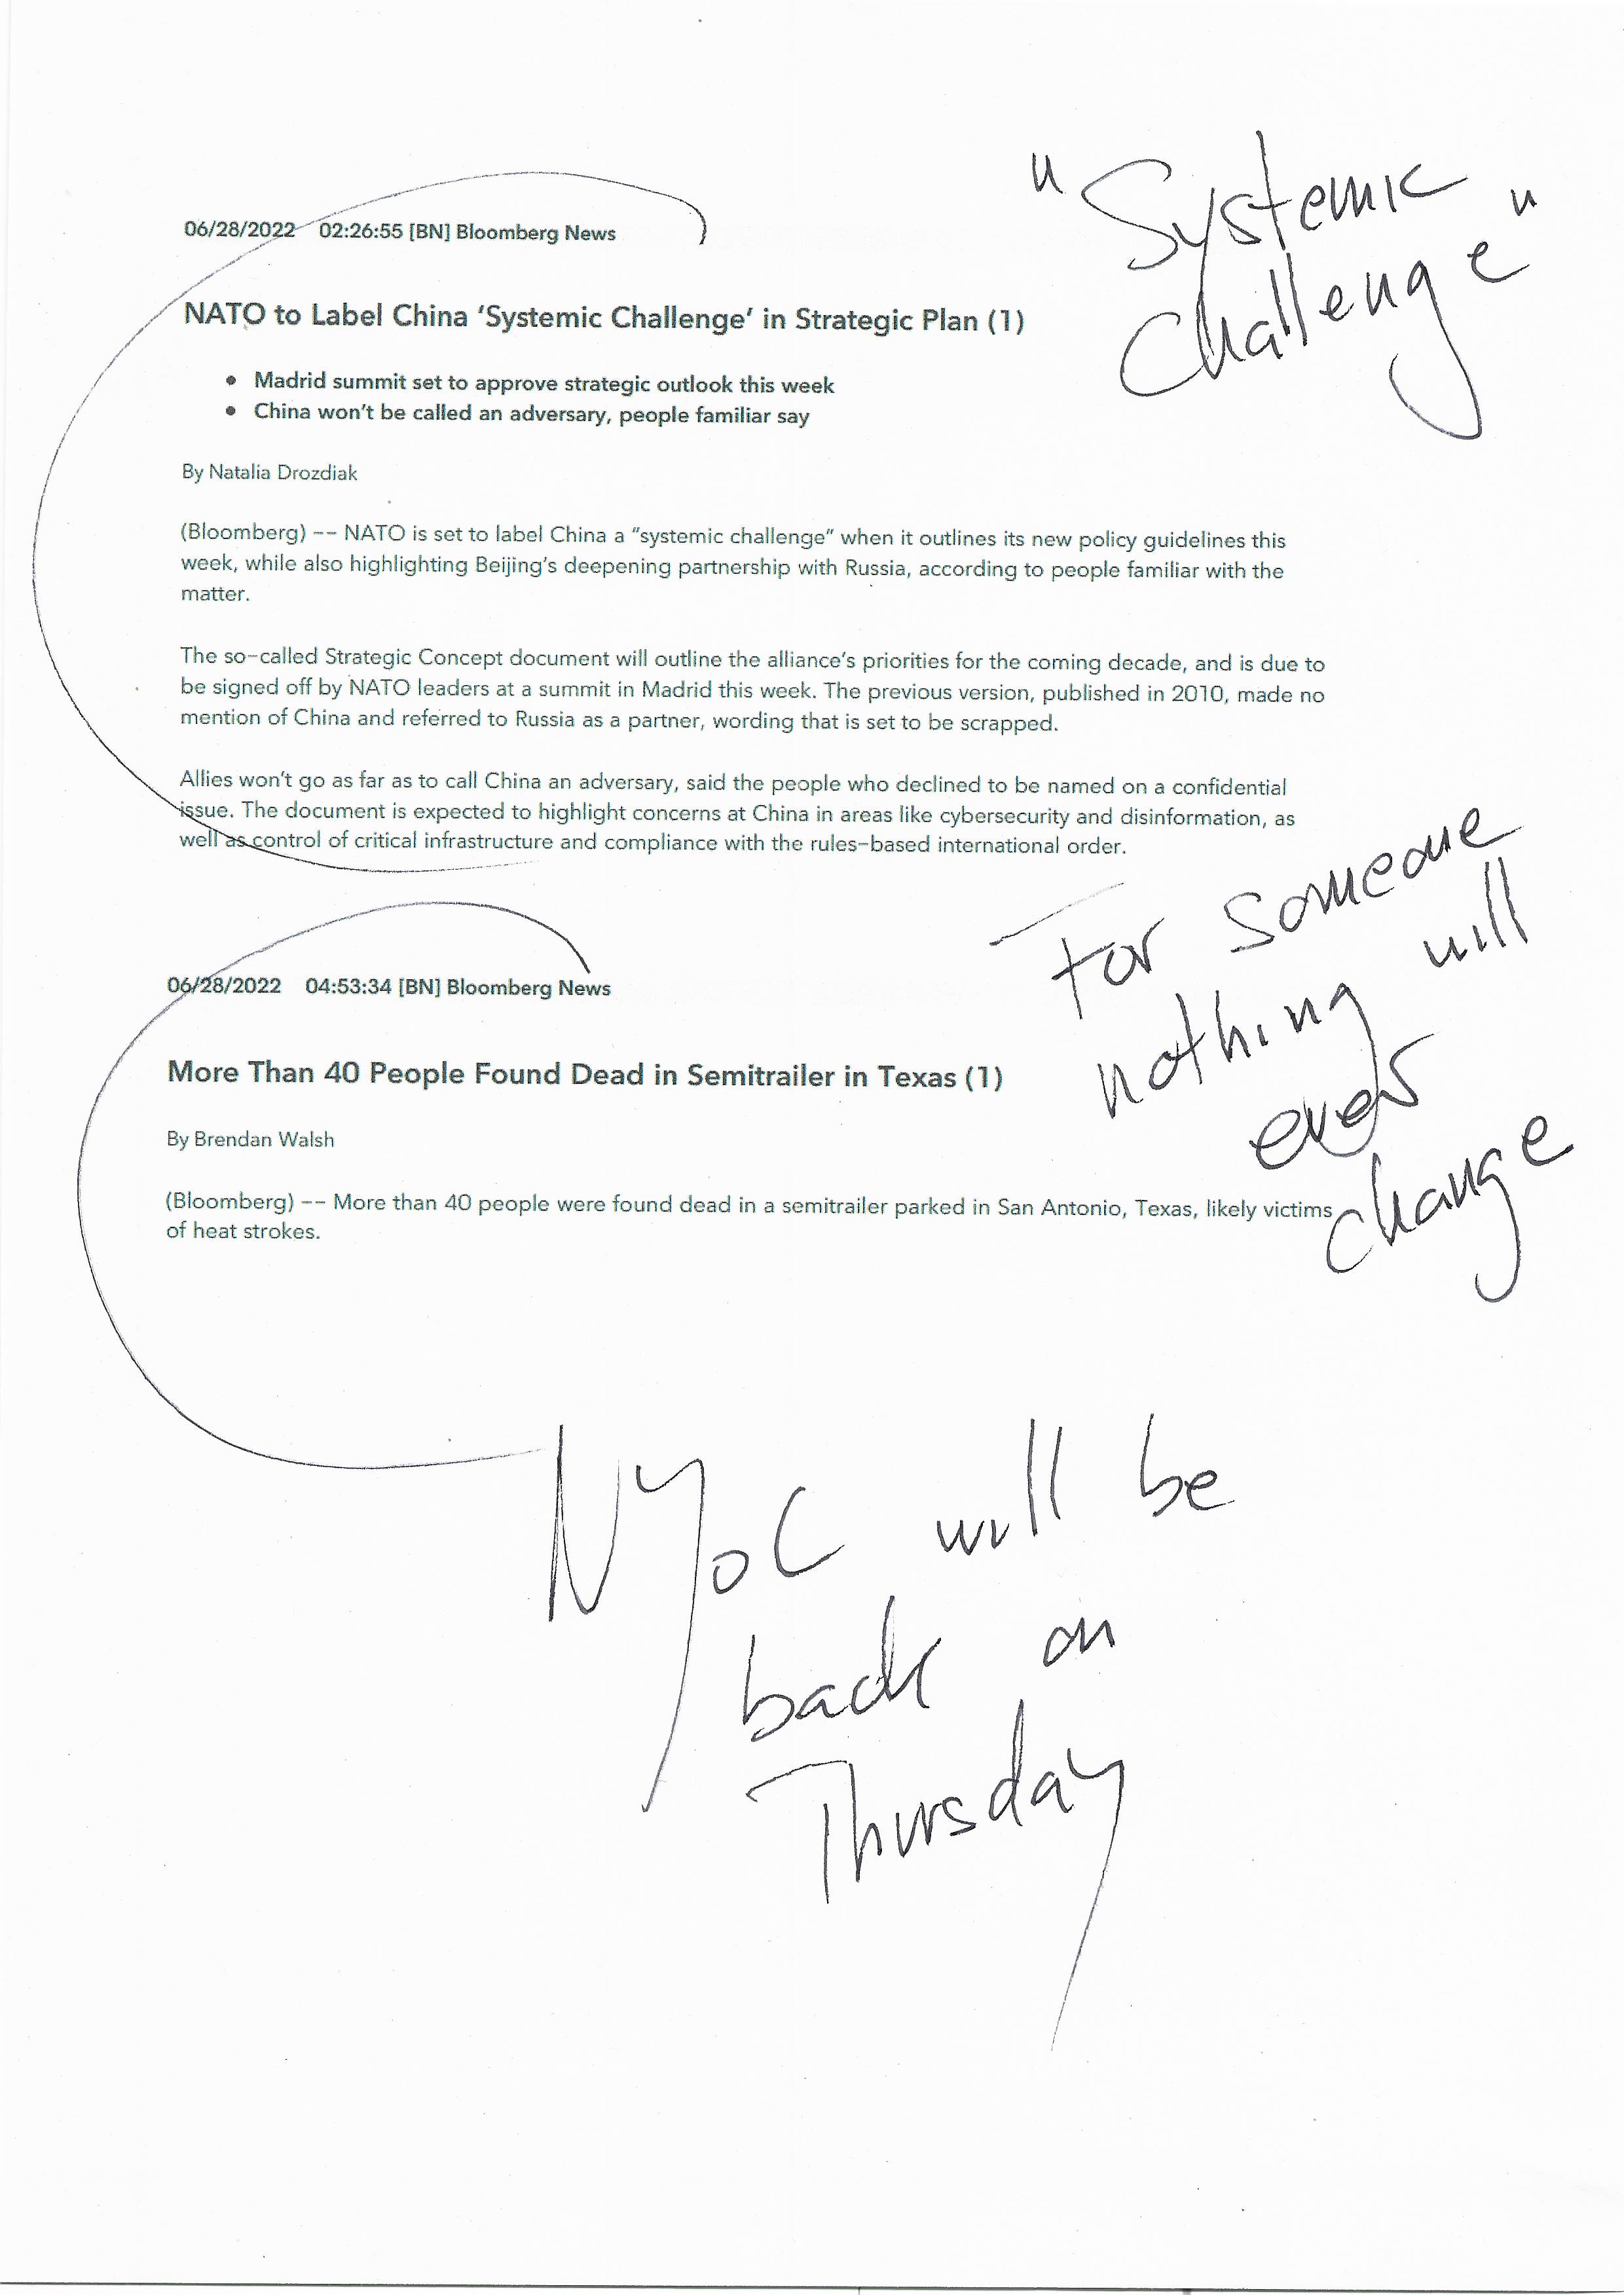 "Systemic
Challenge"
06/28/2022 02:26:55 [BN] Bloomberg News
NATO to Label China ‘Systemic Challenge’ in Strategic Plan (1)
• Madrid summit set to approve strategic outlook this week
• China won’t be called an adversary, people familiar say
By Natalia Drozdiak
(Bloomberg) -- NATO is set to label China a “systemic challenge” when it outlines its new policy guidelines this
week, while also highlighting Beijing’s deepening partnership with Russia, according to people familiar with the
matter.
The so-called Strategic Concept document will outline the alliance’s priorities for the coming decade, and is due to
be signed off by NATO leaders at a summit in Madrid this week. The previous version, published in 2010, made no
mention of China and referred to Russia as a partner, wording that is set to be scrapped.
Allies won’t go as far as to call China an adversary, said the people who declined to be named on a confidential
issue. The document is expected to highlight concerns at China in areas like cybersecurity and disinformation, as
well as control of critical infrastructure and compliance with the rules-based international order.
For someone
nothing will
ever
change
06/28/2022 04:53:34 [BN] Bloomberg News
More Than 40 People Found Dead in Semitrailer in Texas (1)
By Brendan Walsh
(Bloomberg) -- More than 40 people were found dead in a semitrailer parked in San Antonio, Texas, likely victims
of heat strokes.
NYoC will be
back on
Thursday